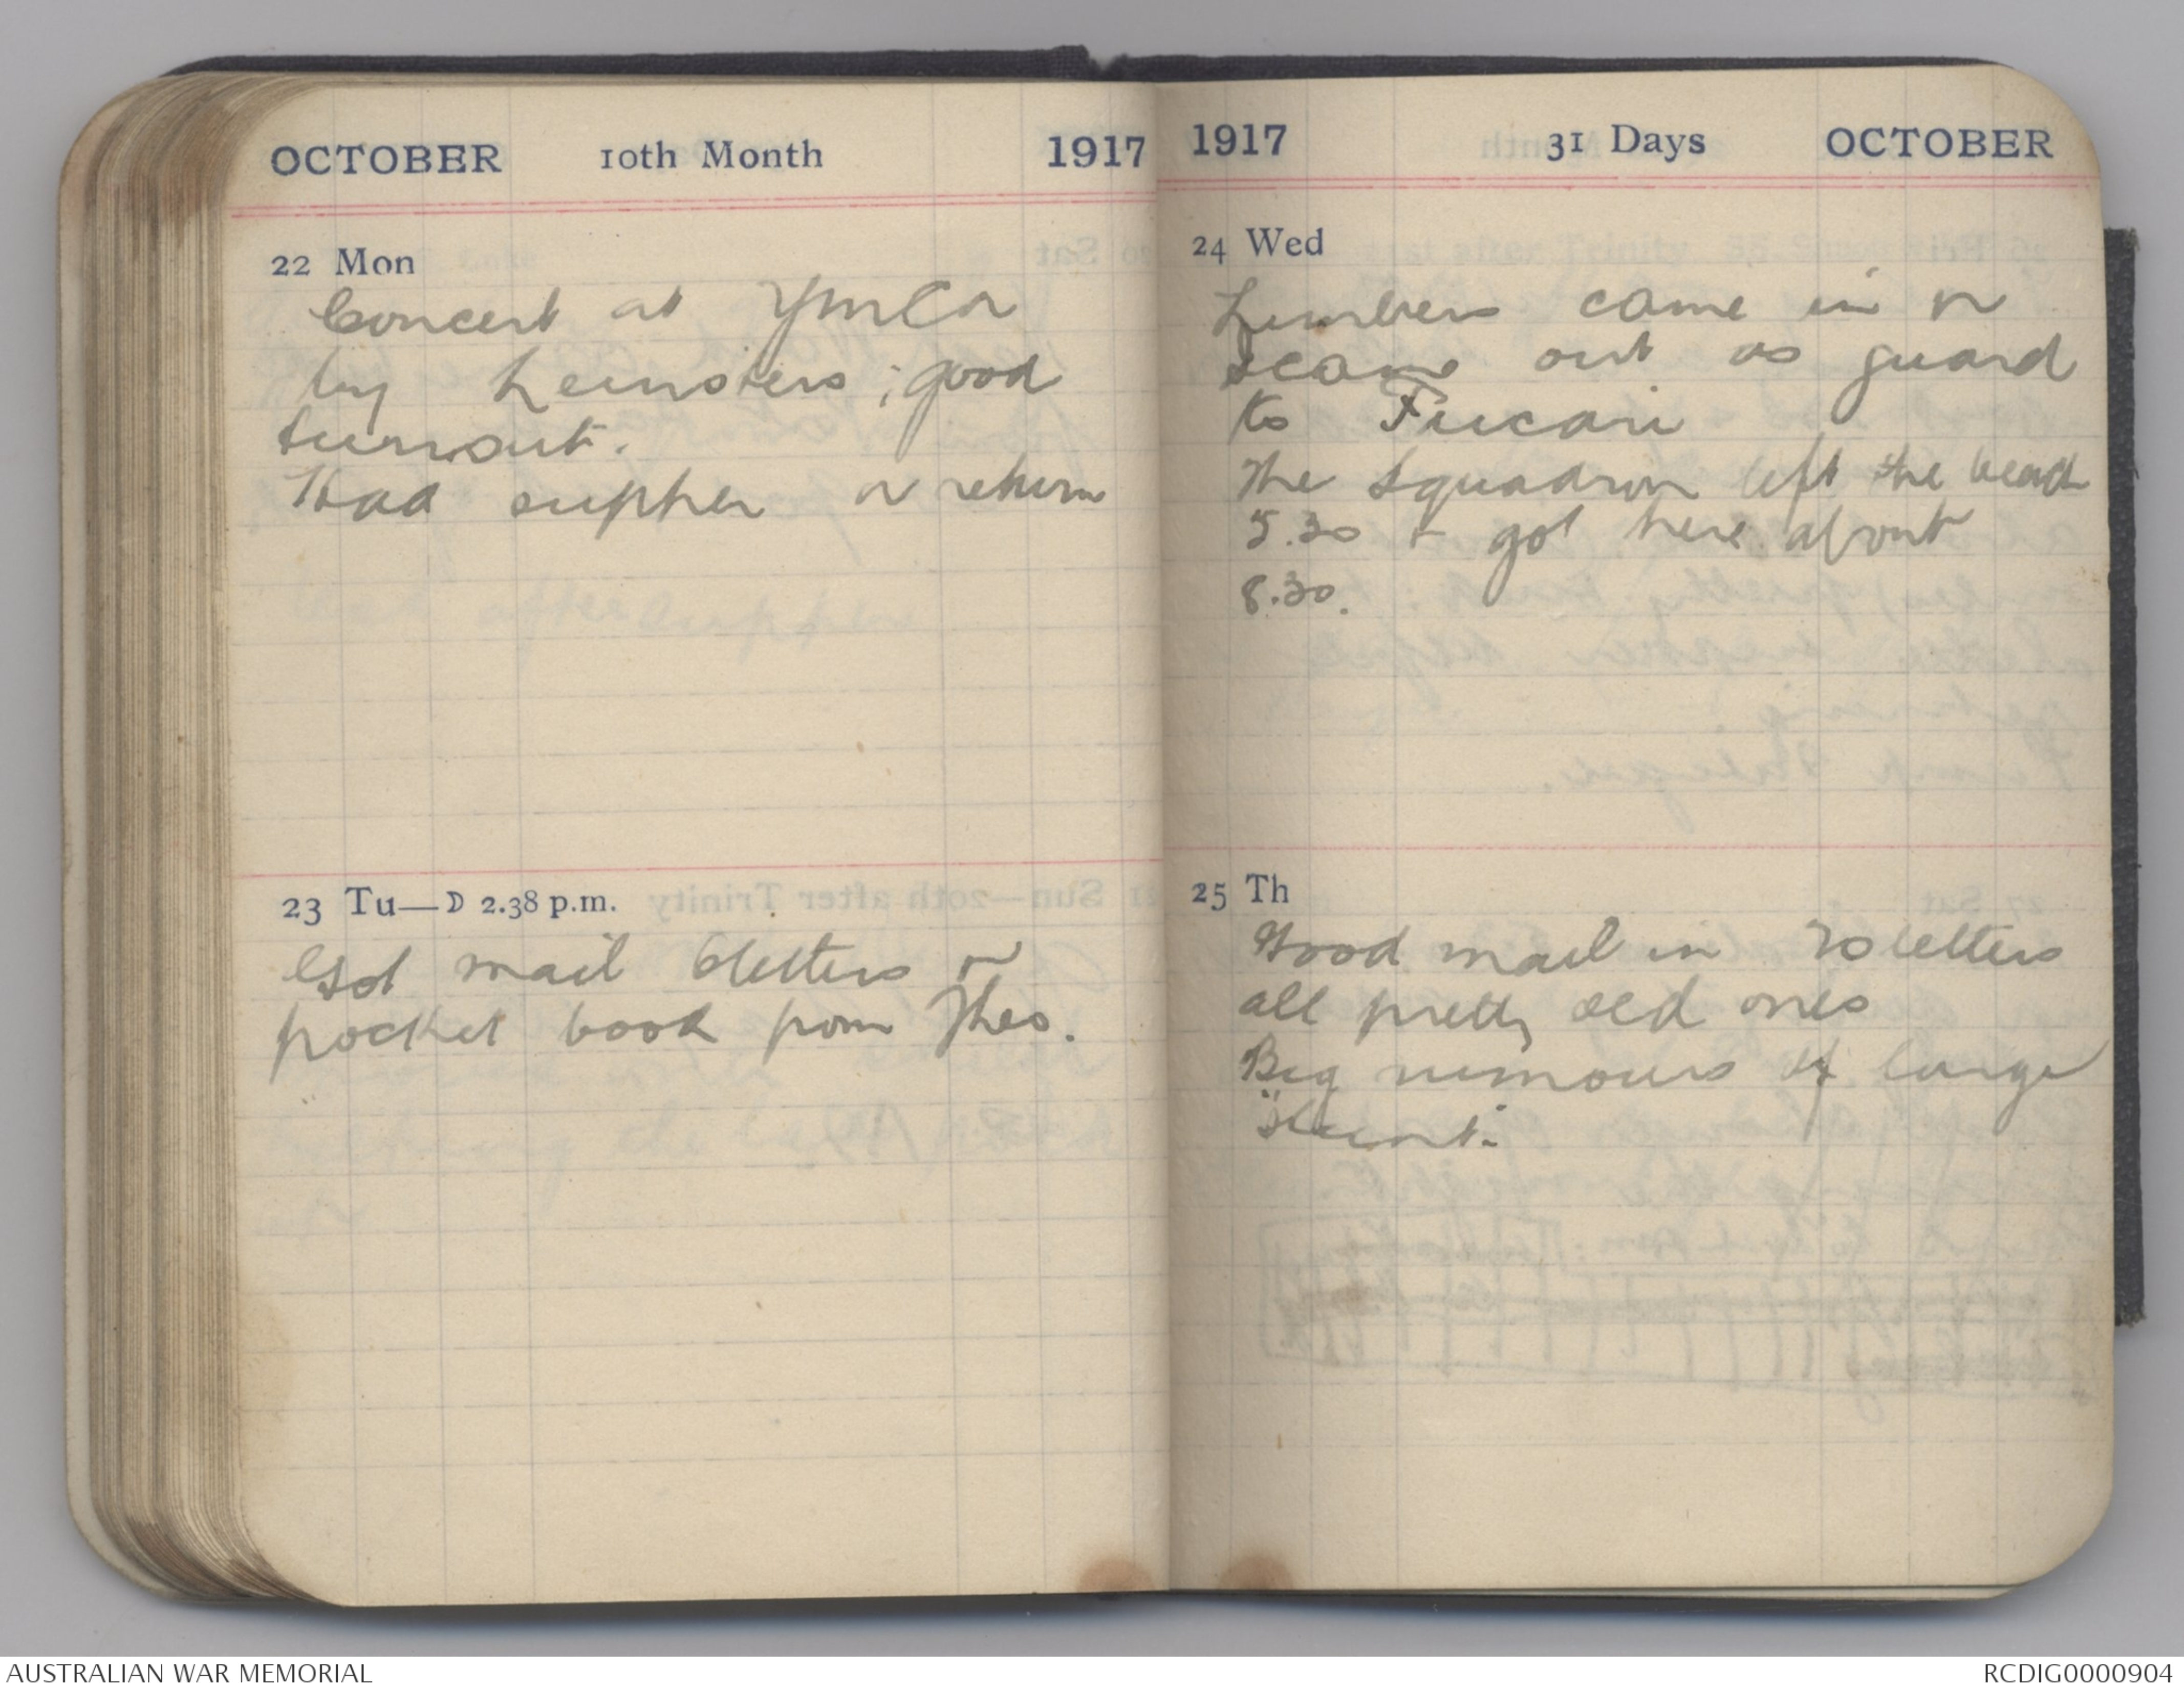 OCTOBER 10th Month 1917
22 Mon
Concert at YMCA
by Leinsters; good
turnout.
Had supper on return
23 Tu—D 2.38 p.m.
Got mail 6 letters &
pocket book from Theo.
1917 31 Days OCTOBER
24 Wed
Limbers came in &
I came out as guard
to
The Squadron left the beach
5.30 + got here about
8.30.
25 Th
Good mail in letters
all pretty old ones
Big rumours of large
"stunt.
AUSTRALIAN WAR MEMORIAL
RCDIG0000904